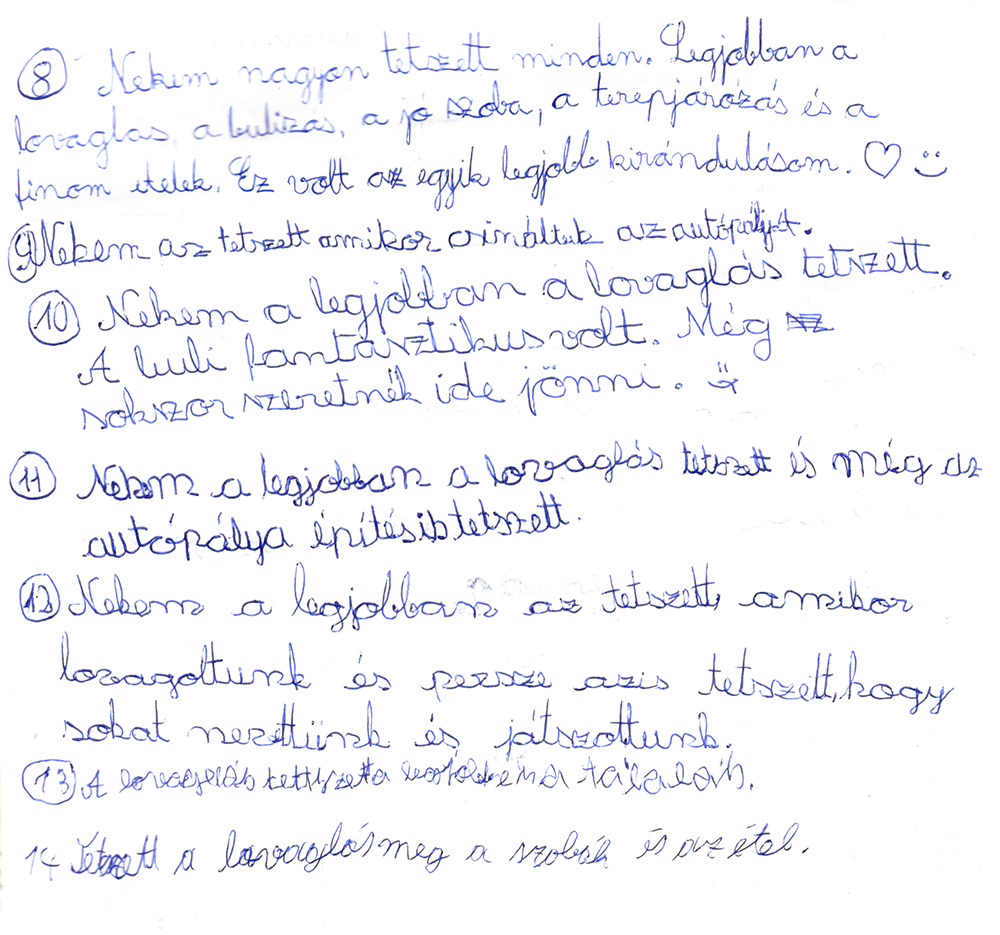 8 Nekem nagyon tetszett minden. Legjobban a
lovaglás, a bulizás, a jó szoba, a terepjárózás és a
finom ételek. Ez volt az egyik legjobb kirándulásom. ♡ :)
9 Nekem az tetszett amikor csináltuk az autópályát.
10 Nekem a legjobban a lovaglás tetszett.
A buli fantasztikus volt. Még
sokszor szeretnék ide jönni. :)
11 Nekem a legjobban a lovaglás tetszett és még az
autópálya építésis tetszett.
12 Nekem a legjobban az tetszett, amikor
lovagoltunk és persze azis tetszett, hogy
sokat nevettünk és játszottunk.
13 A lovaglás
14 Tetszett a lovaglás meg a szobák és az étel.